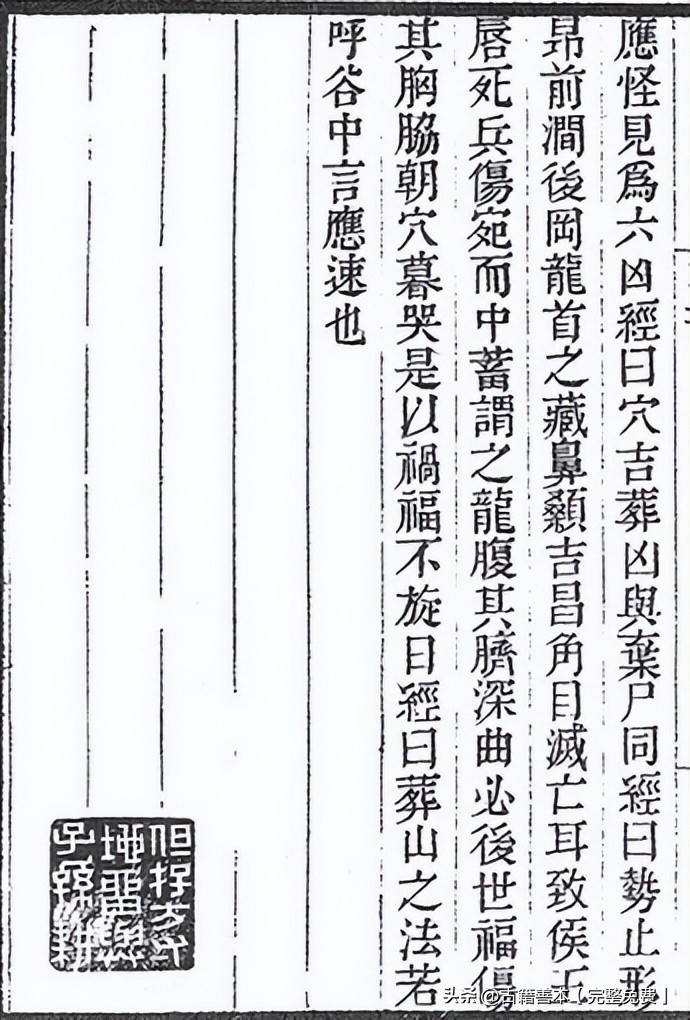 應怪見爲六凶經曰穴吉葬凶與棄尸同經曰勢止形
昻前澗後岡龍首之藏鼻顙吉昌角目滅亡耳致侯王
唇死兵傷宛而中蓄謂之龍腹其臍深曲必後世福傷
其胸脇朝穴暮哭是以禍福不旋日經曰葬山之法若
呼谷中言應速也
但存方寸
地留與
子孫耕
头条@古籍善本【完整免费】